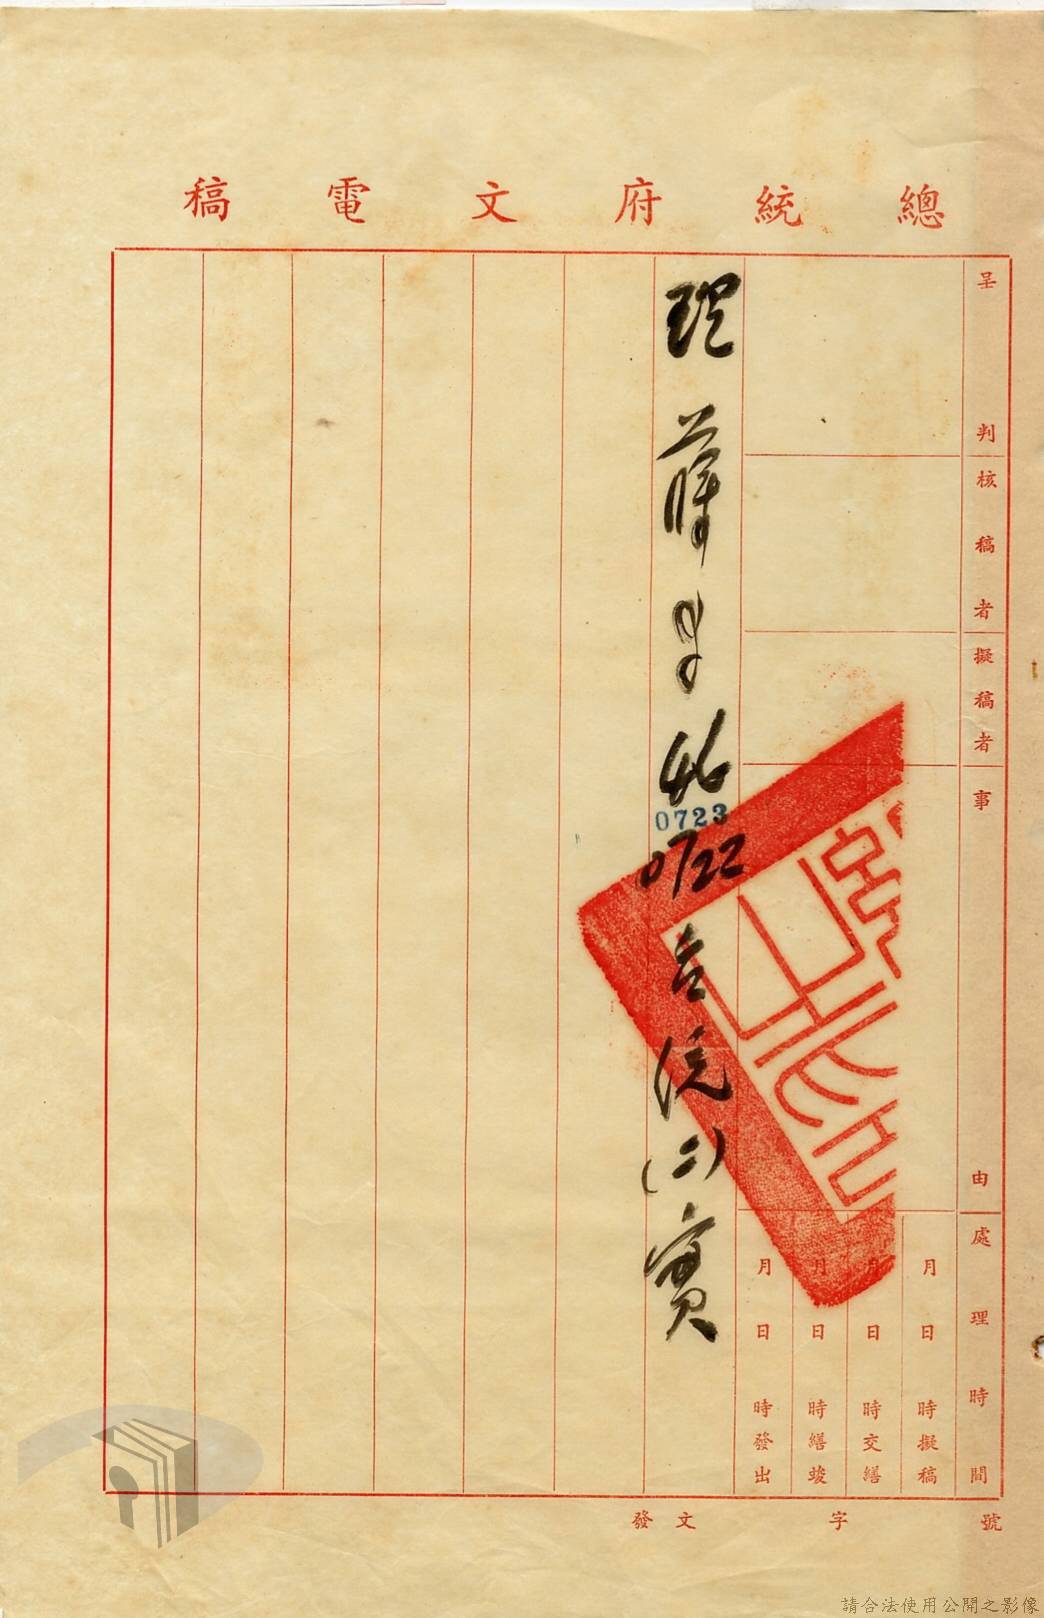 總統府文電稿
呈判
核稿者
擬稿者
事由
處理時間
月日時擬稿
月日時交繕
月日時繕竣
月日時發出
46
0723
0722 台統(二)實
發文 字 號
請合法使用公開之影像